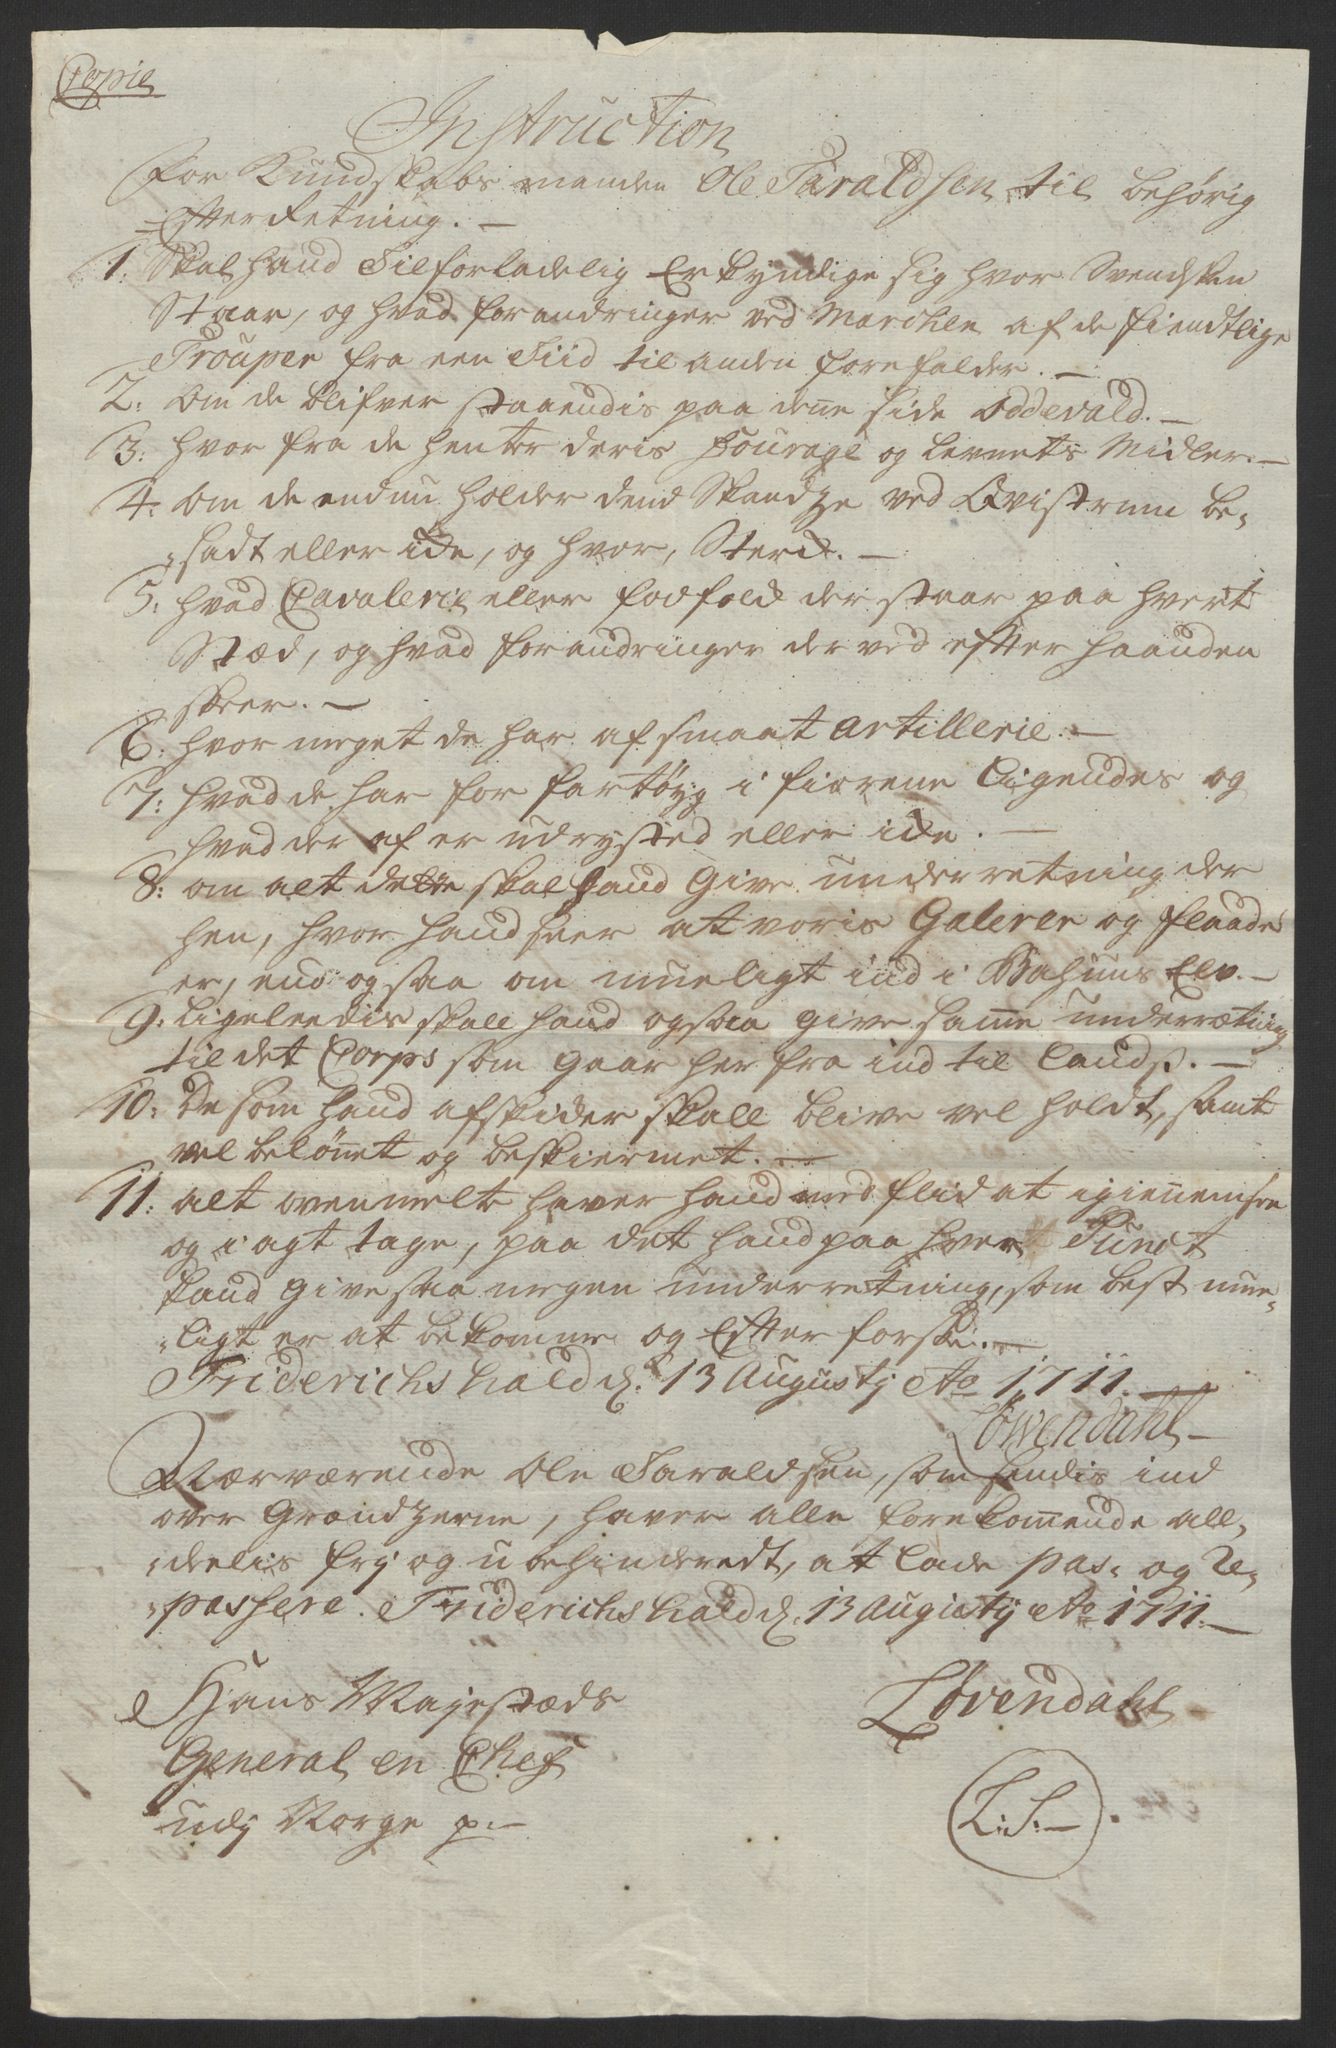 Copie
Instruction
For Kundskabs manden Ole Taraldsen til behørig
Efterretning. —
1. Skal hand Tilforladelig Erkyndige sig hvor Svendsken
Staar, og hvad forandringer ved Marchen af de fiendtlige
Trouper fra een Tiid til anden forefalder. —
2. om de blifver staaendis paa denne side Oddevald. —
3: hvor fra de henter deris fourage og Levnets Midler. —
4: Om de endnu holder dend Skandze ved Qvistrum be-
-sadt eller icke, og hvor Sterck. —
5: hvad Cavalerie eller fodfolck der staar paa hvert
Stæd, og hvad forandringer der ved efter haanden
skeer. —
6: hvor meget de har af smaat Artillerie. —
7: hvad de har for fartøyg i fiorene Ligendes og
hvad der af er udrysted eller icke. —
8: om alt dette skal hand Give underretning der
hen, hvor hand seer at voris Galerer og flaade
er, end og saa om mueligt ind i Bahuus Elv. —
9: Ligeleedis skall hand ogsaa give samme underrætning
til det Corps som gaar her fra ind til Lands. —
10: De som hand afskicker skall blive vel holdt, samt
vel belønnet og beskiermet. —
11: alt ovenmelte haver hand med flid at igiennemsee
og i agt tage, paa det hand paa hver Punct
kand give saa megen underretning, som best mue-
-ligt er at bekomme og Efterforske. —
Friderichshald d. 13 Augustij Ao 1711. —
Löwendahl —
Nærværende Ole Taraldsen, som sendis ind
over Grændzerne, haver alle forekommende all-
-deelis frj og ubehinderedt, at lade pas- og re-
-passere. Friderichshald d. 13 Augustij Ao 1711. —
Hans Majestæds
General en Chef
udj Norge p. —
Løvendahl
L.S. —